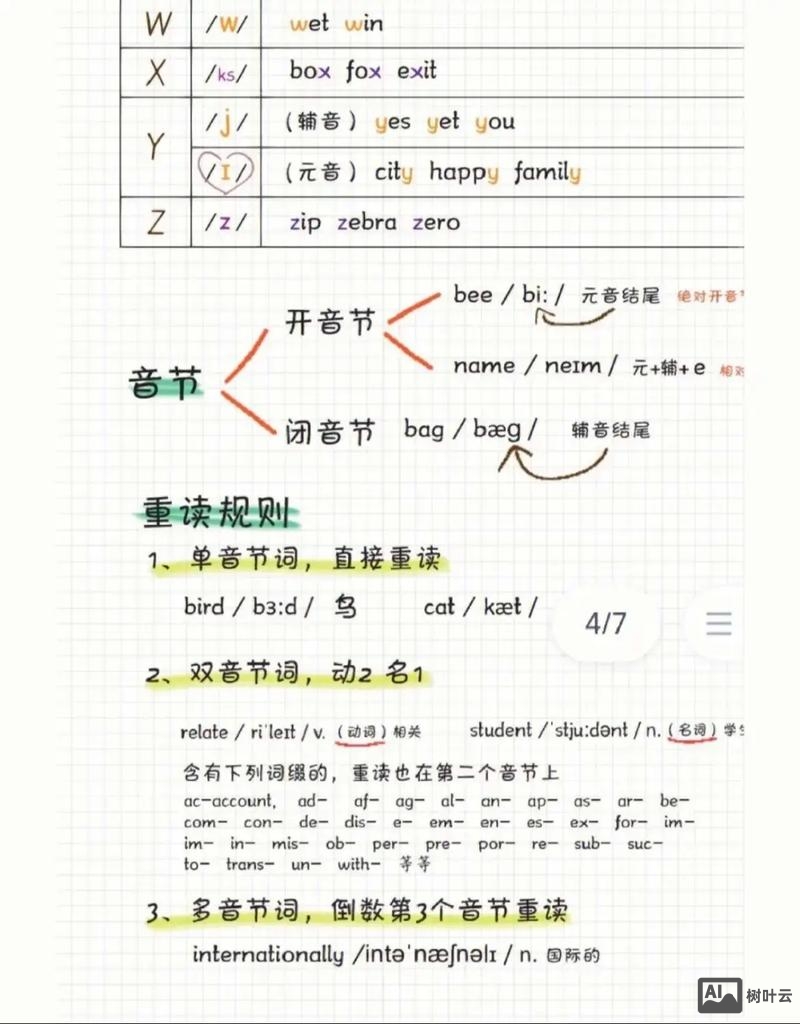 W /w/ wet win
X /ks/ box fox exit
Y /j/ （辅音）yes yet you
/ɪ/ （元音）city happy family
Z /z/ zip zebra zero
bee / bi: / 元音结尾 绝对开音
开音节
name / neɪm / 元+辅+e 相对
音节
闭音节 bag / bæg / 辅音结尾
重读规则
1、单音节词，直接重读
bird / bɜ:d / 鸟 cat / kæt /
4/7
2、双音节词，动2 名1
relate / riˈleɪt / v.（动词）相关 student /ˈstju:dənt / n.（名词）学
含有下列词缀的，重读也在第二个音节上
ac-account, ad- af- ag- al- an- ap- as- ar- be-
com- con- de- dis- e- em- en- es- ex- for- im-
im- in- mis- ob- per- pre- por- re- sub- suc-
to- trans- un- with- 等等
3、多音节词，倒数第3个音节重读
internationally /intəˈnæʃnəlɪ / n. 国际的
AI 树叶云